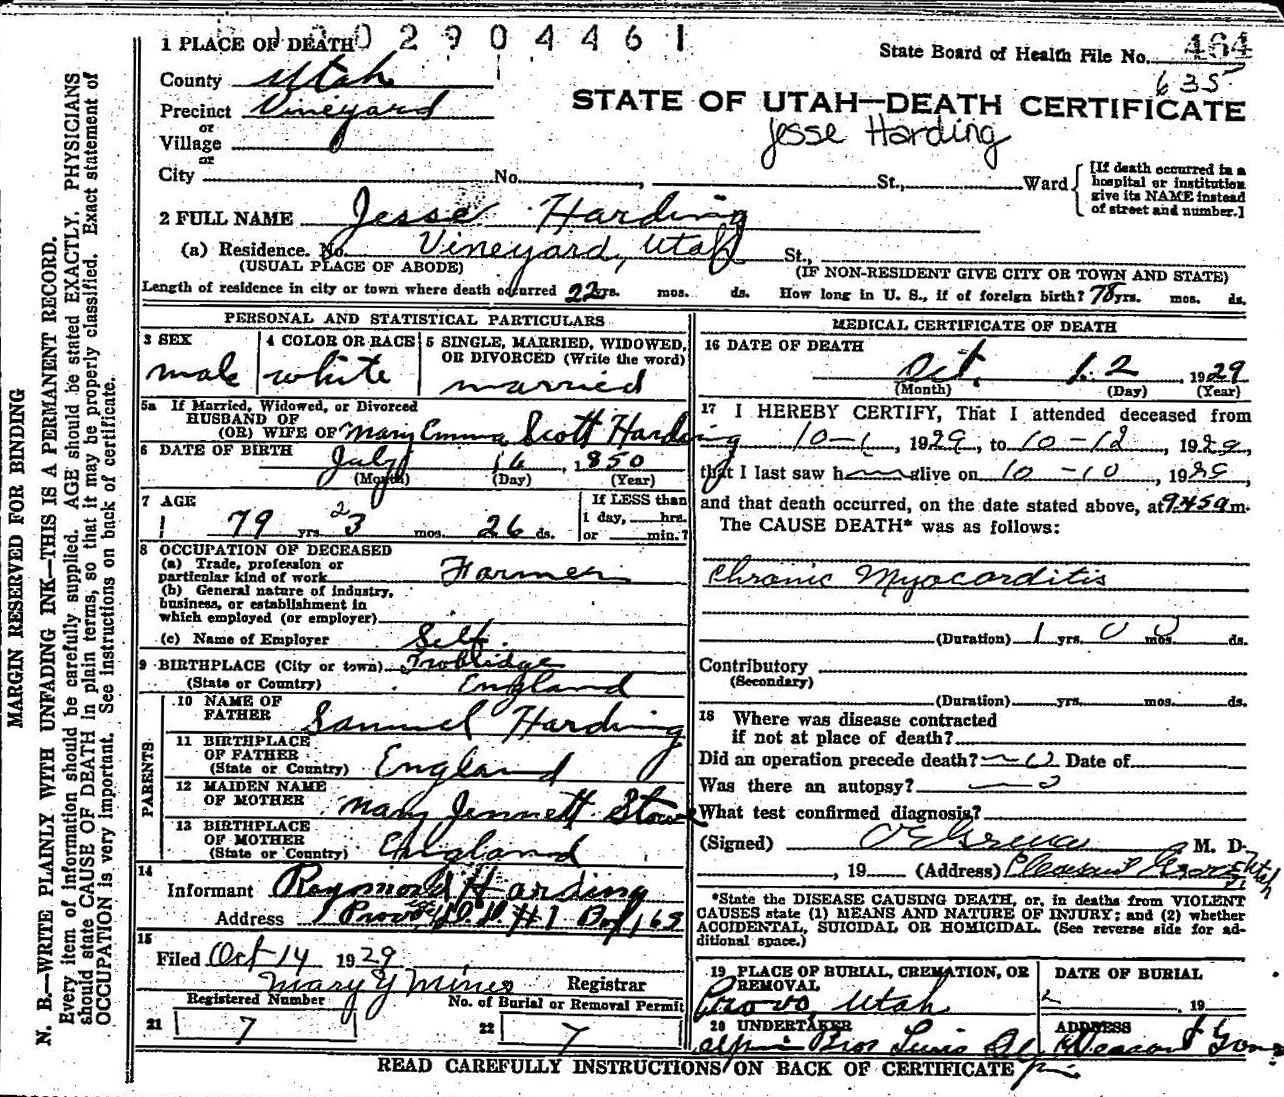 1 PLACE OF DEATH 02904461
State Board of Health File No. 464
635
County Utah
Precinct Vineyard
or
Village
or
STATE OF UTAH—DEATH CERTIFICATE
Jesse Harding
City No. , St., Ward
[If death occurred in a hospital or institution give its NAME instead of street and number.]
2 FULL NAME Jesse Harding
(a) Residence. No. Vineyard, Utah St.,
(USUAL PLACE OF ABODE) (IF NON-RESIDENT GIVE CITY OR TOWN AND STATE)
Length of residence in city or town where death occurred 22 yrs. mos. ds. How long in U. S., if of foreign birth? 78 yrs. mos. ds.
PERSONAL AND STATISTICAL PARTICULARS
3 SEX
male
4 COLOR OR RACE
white
5 SINGLE, MARRIED, WIDOWED, OR DIVORCED (Write the word)
married
5a If Married, Widowed, or Divorced
HUSBAND OF
(OR) WIFE OF Mary Emma Scott Harding
6 DATE OF BIRTH July 16, 1850
(Month) (Day) (Year)
7 AGE
79 yrs. 2 3 mos. 26 ds.
If LESS than
1 day, hrs.
or min.?
8 OCCUPATION OF DECEASED
(a) Trade, profession or
particular kind of work Farmer
(b) General nature of industry,
business, or establishment in
which employed (or employer)
(c) Name of Employer Self
9 BIRTHPLACE (City or town)
(State or Country) England
PARENTS
10 NAME OF
FATHER Samuel Harding
11 BIRTHPLACE
OF FATHER
(State or Country) England
12 MAIDEN NAME
OF MOTHER Mary Jennett Stowe
13 BIRTHPLACE
OF MOTHER
(State or Country) England
14
Informant Raymond Harding
Address Provo, #1 Box 163
15
Filed Oct 14 1929
Mary Y Miner Registrar
Registered Number
21 7
No. of Burial or Removal Permit
22 7
MEDICAL CERTIFICATE OF DEATH
16 DATE OF DEATH
Oct. 12, 1929
(Month) (Day) (Year)
17 I HEREBY CERTIFY, That I attended deceased from
10-1, 1929, to 10-12, 1929,
that I last saw h alive on 10-10, 1929,
and that death occurred, on the date stated above, at 9.45a m.
The CAUSE DEATH* was as follows:
Chronic Myocarditis
(Duration) 1 yrs. 0 0 mos. ds.
Contributory
(Secondary)
(Duration) yrs. mos. ds.
18 Where was disease contracted
if not at place of death?
Did an operation precede death? no Date of
Was there an autopsy? no
What test confirmed diagnosis?
(Signed) M. D.
, 19 (Address) Pleasant Grove Utah
*State the DISEASE CAUSING DEATH, or, in deaths from VIOLENT
CAUSES state (1) MEANS AND NATURE OF INJURY; and (2) whether
ACCIDENTAL, SUICIDAL OR HOMICIDAL. (See reverse side for additional space.)
19 PLACE OF BURIAL, CREMATION, OR
REMOVAL
Provo, Utah
DATE OF BURIAL
, 19
20 UNDERTAKER
ADDRESS
READ CAREFULLY INSTRUCTIONS ON BACK OF CERTIFICATE
MARGIN RESERVED FOR BINDING
N. B.—WRITE PLAINLY WITH UNFADING INK—THIS IS A PERMANENT RECORD.
Every item of information should be carefully supplied. AGE should be stated EXACTLY. PHYSICIANS
should state CAUSE OF DEATH in plain terms, so that it may be properly classified. Exact statement of
OCCUPATION is very important. See instructions on back of certificate.